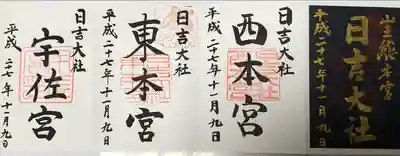 山王総本宮
日吉大社
平成二十七年十一月九日
日吉大社
西本宮
平成二十七年十一月九日
日吉大社
東本宮
平成二十七年十一月九日
日吉大社
宇佐宮
平成二十七年十一月九日